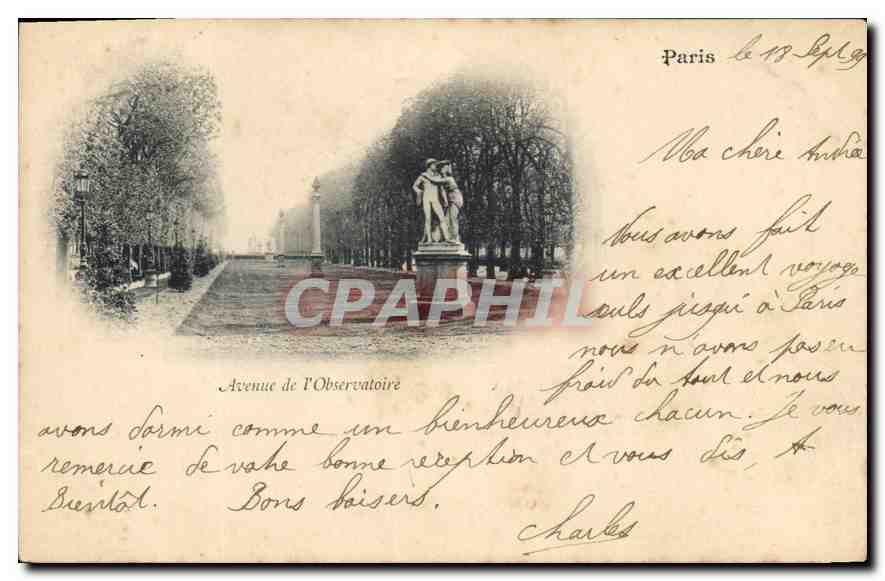 Paris le 18 Sept 99
Ma chère Andrée
Nous avons fait
un excellent voyage
seuls jusqu'à Paris
nous n'avons pas eu
froid du tout et nous
avons dormi comme un bienheureux chacun. Je vous
remercie de votre bonne réception et vous dis, A
Bientôt. Bons baisers.
Charles
Avenue de l'Observatoire
CPAPHIL